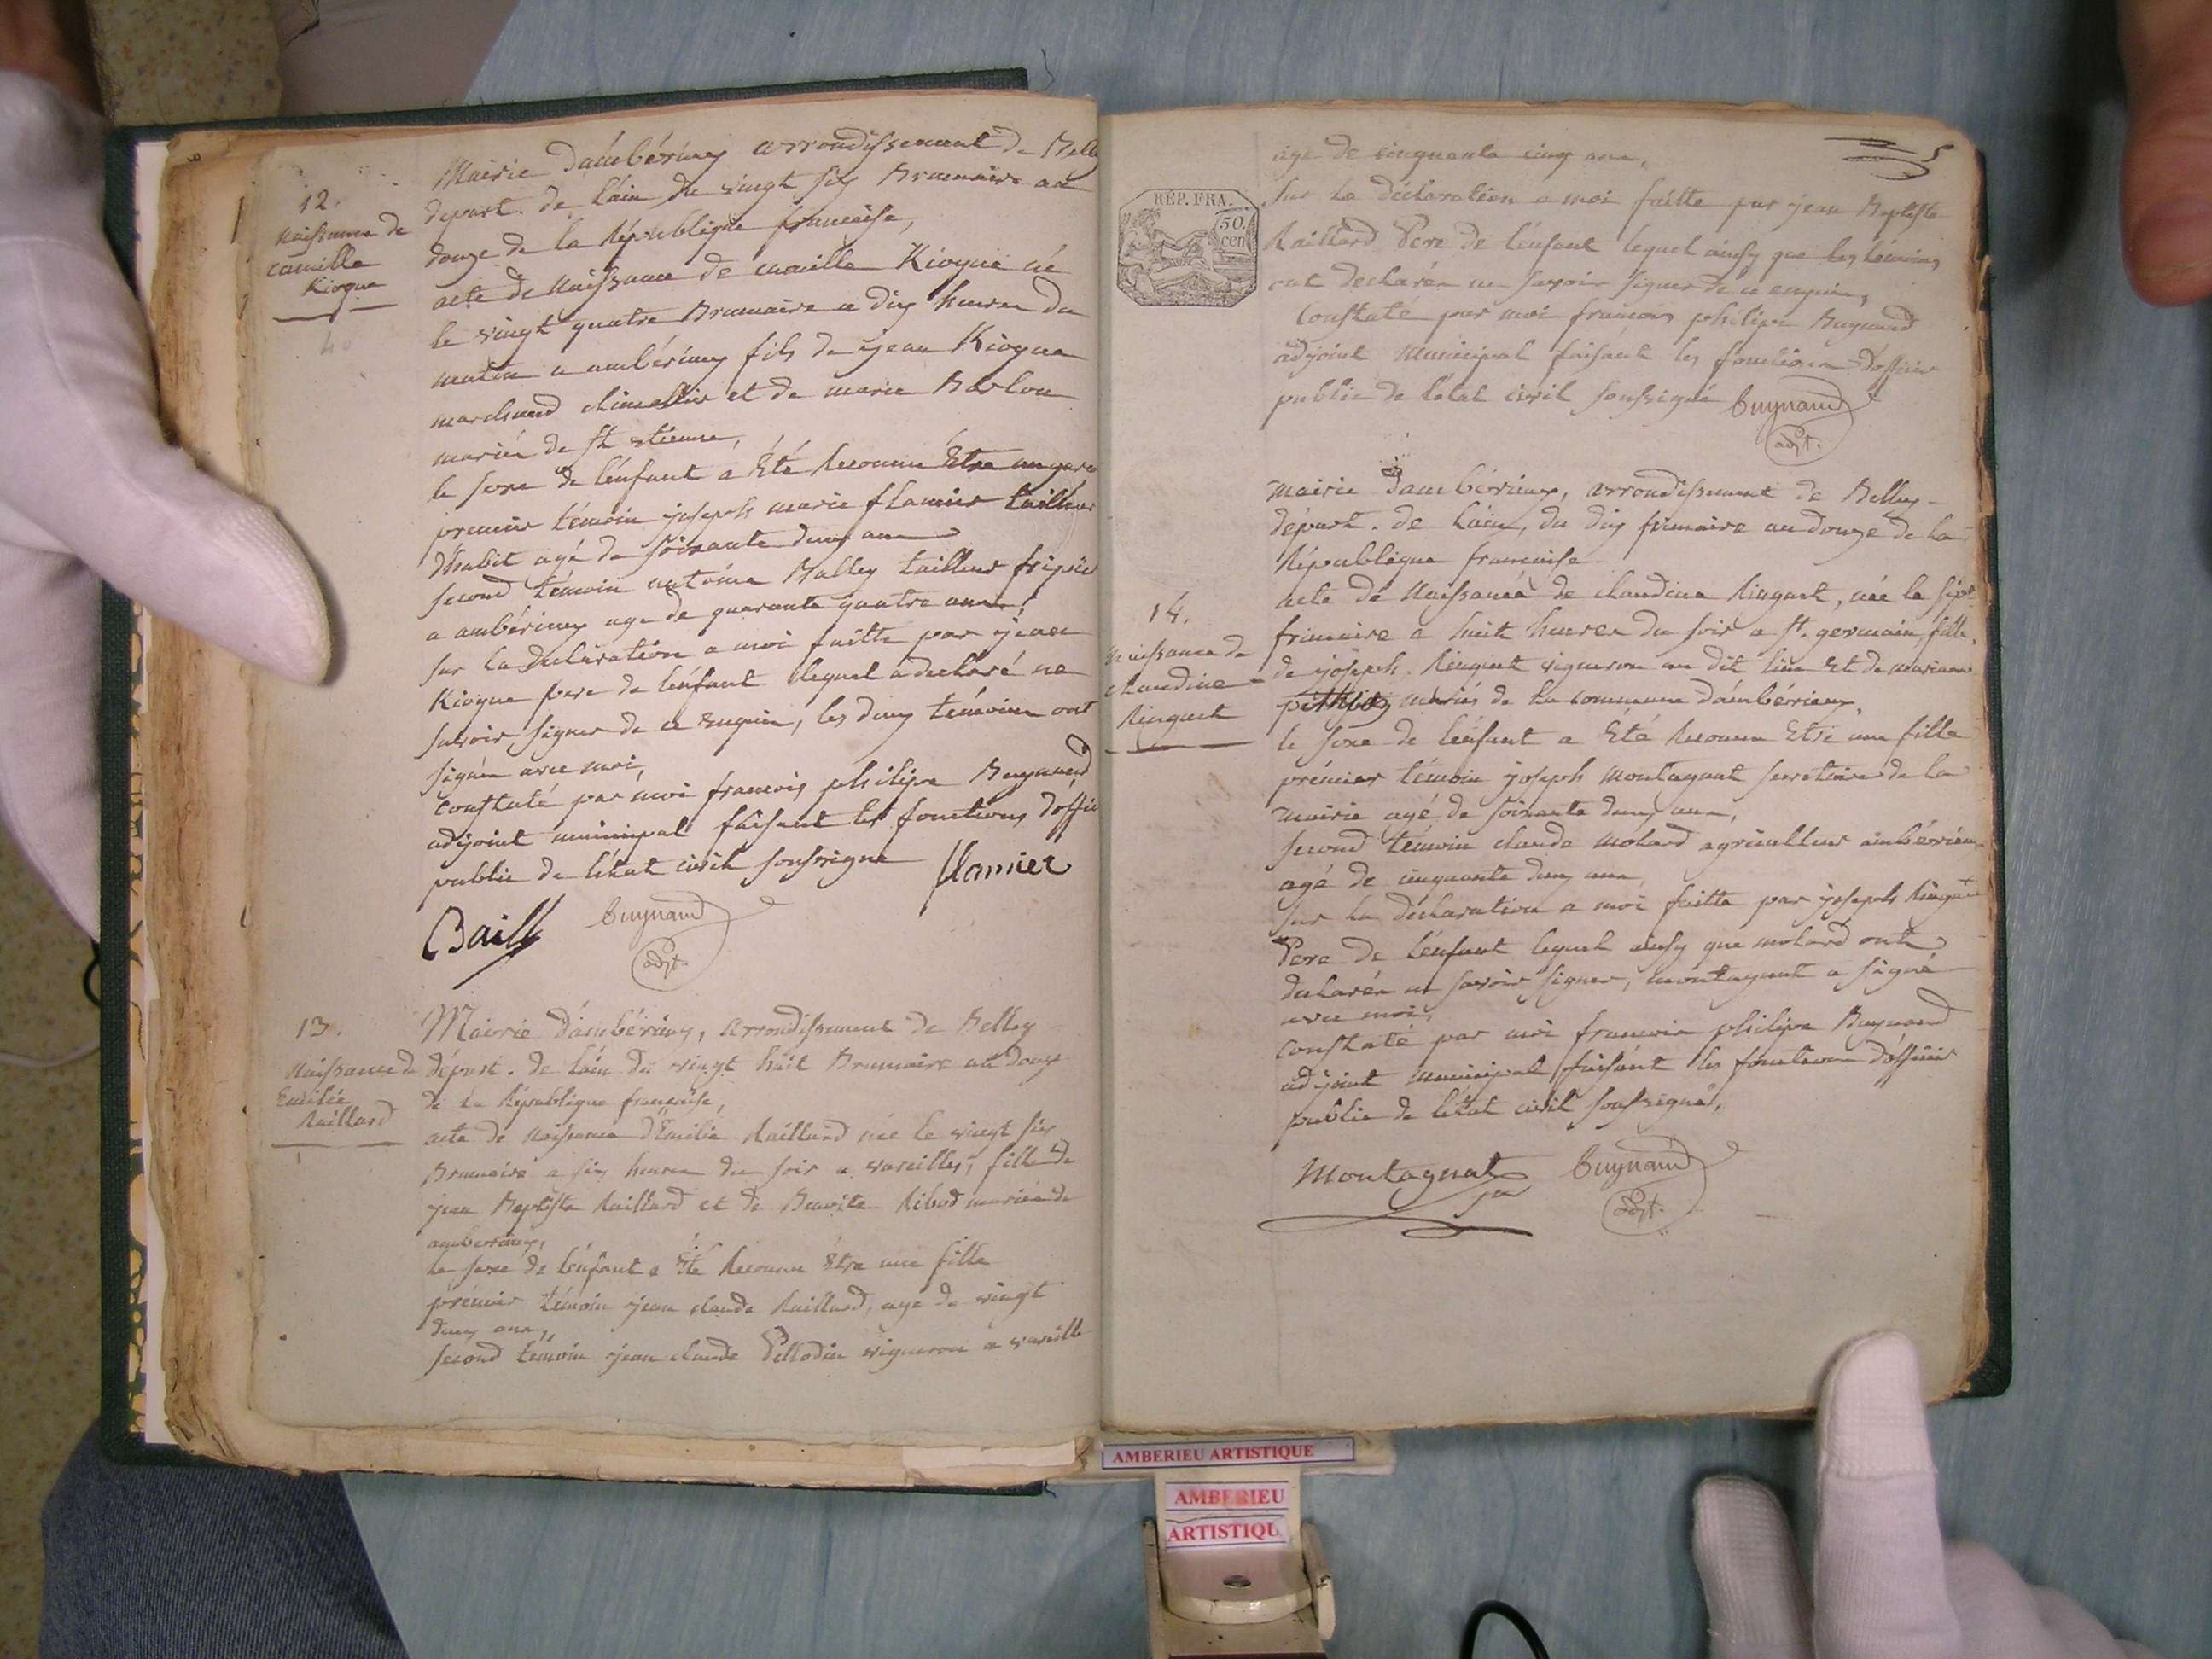 12.
naissance de
camille
Kioque
Mairie d'ambérieux arrondissement de Belley
depart. de l'ain du vingt six Brumaire an
douze de la République francaise,
acte de naissance de camille Kioque né
le vingt quatre Brumaire a dix heures du
matin a ambérieux fils de jean Kioque
marchand et de marie Barlou
mariés de st etienne,
le sexe de l'enfant a été Reconnu Etre un
premier témoin joseph marie flamier tailleur
d'habit agé de soixante deux ans
second témoin antoine Balley tailleur fripier
a ambérieux age de quarante quatre ans,
sur la declaration a moi faitte par jean
Kioque pere de l'enfant lequel a declaré ne
savoir signer de ce enquis, les deux témoins ont
signés avec moi,
constaté par moi francois philipe Buynand
adjoint municipal faisant les fonctions d'offic
public de l'état civil soussigne flamier
Bailly Buynand
adjt.
13.
Naissance de
Emilie
Raillard
Mairie d'ambérieux, arrondissement de Belley
départ. de l'ain du vingt huit Brumaire an douze
de la République francaise,
acte de naissance d'Emilie Raillard née le vingt six
Brumaire a six heures du soir a vareilles, fille de
jean Baptiste Raillard et de Benoite Ribod mariés de
amberieux,
le sexe de l'enfant a été Reconnu être une fille
premier témoin jean claude Raillard, age de vingt
deux ans,
second témoin jean claude Pellodin vigneron a vareille
5
age de cinquante cinq ans,
RÉP. FRA.
50.
cen
sur la déclaration a moi faitte par jean Baptiste
Raillard Pere de l'enfant lequel ainsy que les témoins
ont declarés ne savoir signer de ce enquis,
Constaté par moi francois philipe Buynand
adjoint municipal faisant les fonctions d'officier
public de l'état civil soussigné Buynand
adjt.
14.
Naissance de
claudine
Ringuet
mairie d'ambérieux, arrondissement de Belley
départ. de l'ain, du dix frimaire an douze de la
République francaise
acte de Naissance de claudine Ringuet, née le sept
frimaire a huit heures du soir a st. germain, fille
de joseph Ringuet vigneron au dit lieu Et de marianne
mariés de la commune d'ambérieux,
le sexe de l'enfant a Eté Reconnu Etre une fille
prémier témoin joseph montagnat secretaire de la
mairie agé de soixante deux ans,
second témoin claude molard agriculteur ambérieux
agé de cinquante deux ans
sur la déclaration a moi faitte par joseph Ringuet
Pere de l'enfant lequel ainsy que molard ont
declarés ne savoir signer, montagnat a signé
avec moi,
constaté par moi francois philipe Buynand
adjoint municipal faisant les fonctions d'officier
public de l'état civil soussigné,
Montagnat Buynand
adjt.
AMBERIEU ARTISTIQUE
AMBERIEU
ARTISTIQU